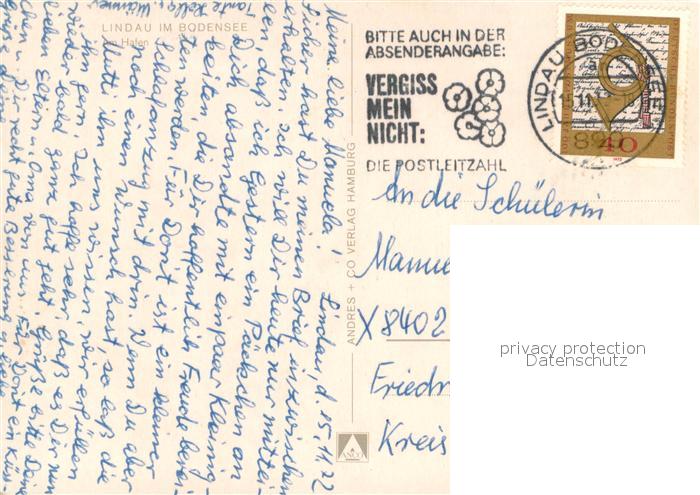 LINDAU IM BODENSEE
Hafen
Lindau, d. 15.11.72
Meine liebe Manuela!
Sicher hast Du meinen Brief inzwischen
erhalten. Ich will Dir heute nur mittei-
len, daß ich gestern ein Päckchen an
Dich absandte mit ein paar Kleinig-
keiten, die Dir hoffentlich Freude berei-
ten werden. Für Dorit ist ein kleiner
Schlafanzug mit drin. Wenn Du aber
noch einen Wunsch hast, so laß die
Mutti ihn uns wissen, wir erfüllen
ihn gern. Ich hoffe sehr, daß es Dir nun
wieder bald ganz gut geht. Grüße bitte Deine
lieben Eltern u. Oma von uns. Für Dorit ein Küs-
u. Dir recht gute Besserung u. liebe
Tante Kella, Männer
ANDRES + CO VERLAG HAMBURG
ANCO
BITTE AUCH IN DER
ABSENDERANGABE:
VERGISS
MEIN
NICHT:
DIE POSTLEITZAHL
LINDAU BODENSEE
15.11.
40
An die Schülerin
Manue
X 8402
Friedr
Kreis
privacy protection
Datenschutz